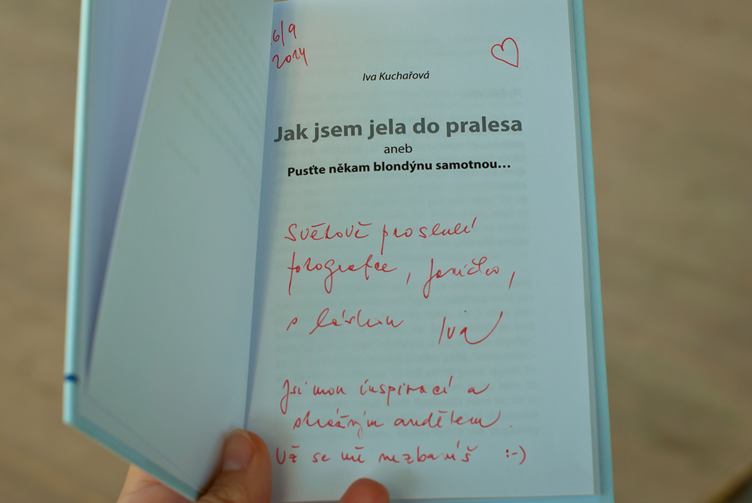 6/9
2014
Iva Kuchařová
Jak jsem jela do pralesa
aneb
Pusťte někam blondýnu samotnou...
Světově proslulé
fotografce,
s láskou Iva
Jsi mou inspirací a
strážným andělem.
Už se mě nezbavíš :-)